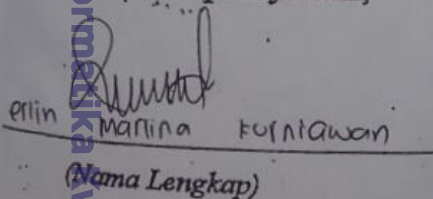 erlin Marlina Kurniawan
(Nama Lengkap)
ormatika